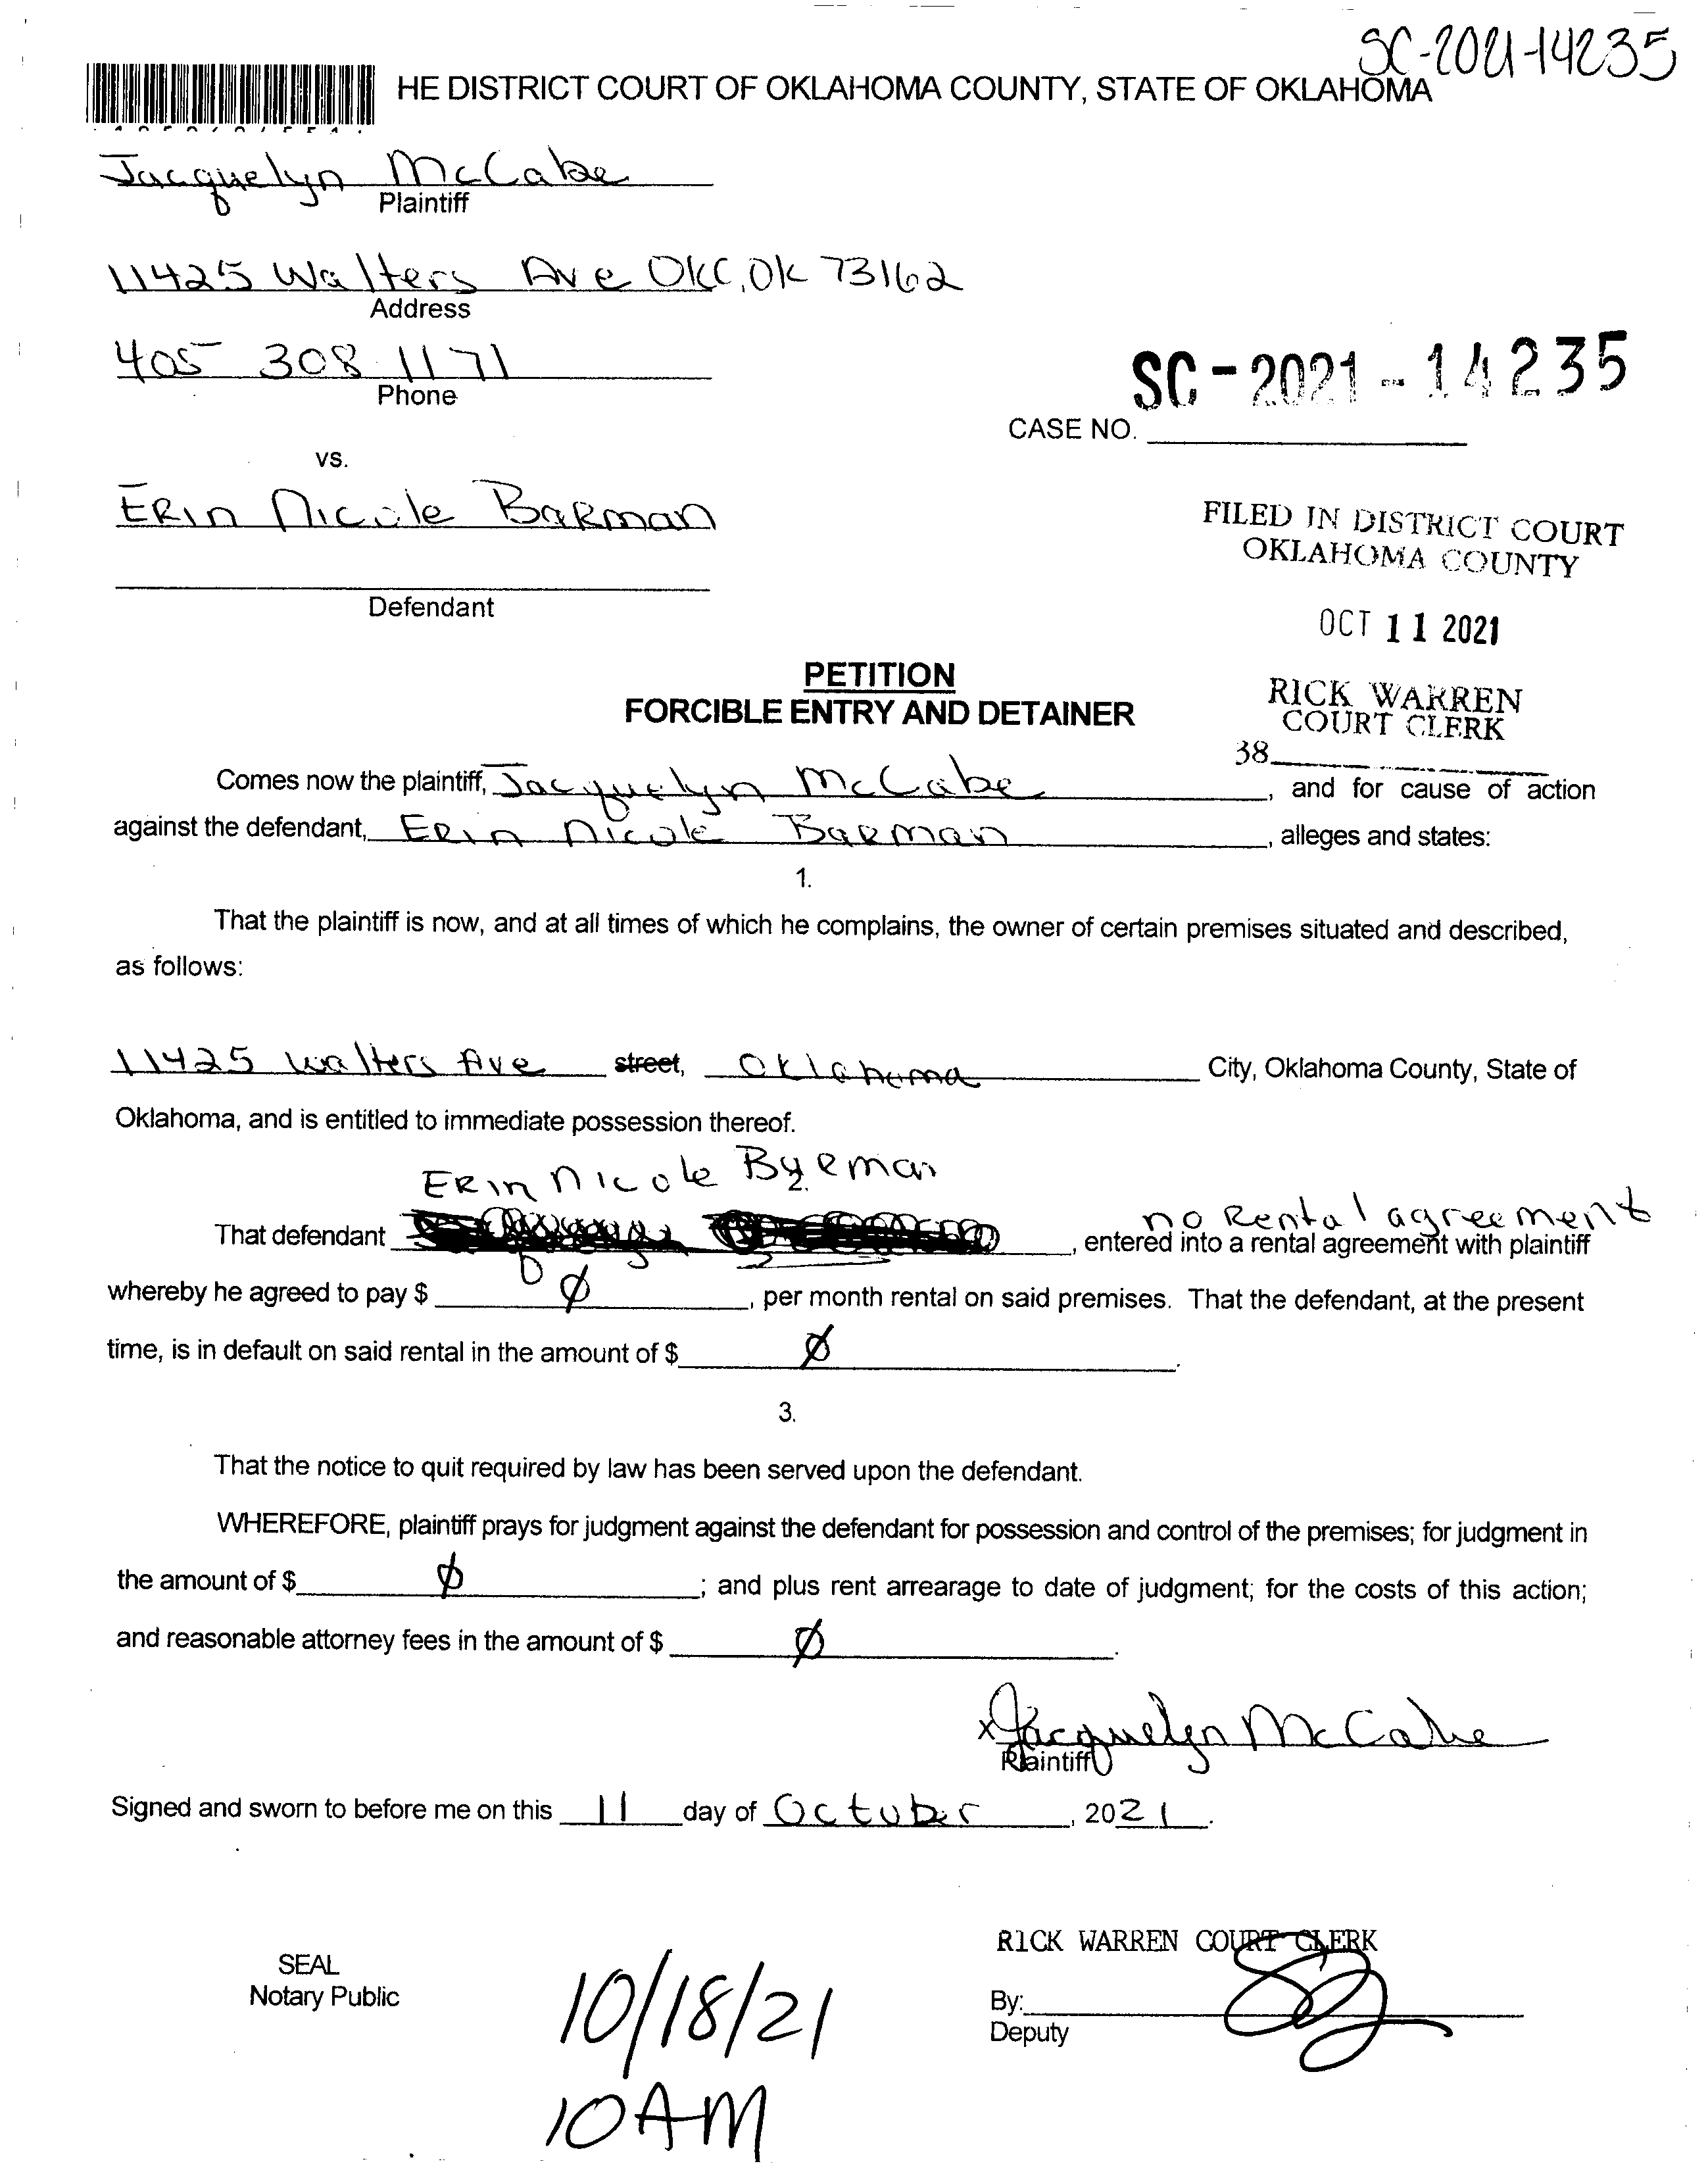 SC-2021-14235
HE DISTRICT COURT OF OKLAHOMA COUNTY, STATE OF OKLAHOMA
Jacquelyn McCabe
Plaintiff
11425 Walters Ave OKC, OK 73162
Address
405 308 1171
Phone
SC-2021-14235
CASE NO.
vs.
ERIN Nicole BaRman
FILED IN DISTRICT COURT
OKLAHOMA COUNTY
Defendant
OCT 11 2021
PETITION
FORCIBLE ENTRY AND DETAINER
RICK WARREN
COURT CLERK
38
Comes now the plaintiff, Jacquelyn McCabe, and for cause of action
against the defendant, ERIN Nicole BaRman, alleges and states:
1.
That the plaintiff is now, and at all times of which he complains, the owner of certain premises situated and described,
as follows:
11425 Walters Ave street, Oklahoma City, Oklahoma County, State of
Oklahoma, and is entitled to immediate possession thereof.
ERIN Nicole
2.
no Rental agreement
That defendant , entered into a rental agreement with plaintiff
whereby he agreed to pay $ Ø, per month rental on said premises. That the defendant, at the present
time, is in default on said rental in the amount of $ Ø.
3.
That the notice to quit required by law has been served upon the defendant.
WHEREFORE, plaintiff prays for judgment against the defendant for possession and control of the premises; for judgment in
the amount of $ Ø; and plus rent arrearage to date of judgment; for the costs of this action;
and reasonable attorney fees in the amount of $ Ø.
x Jacquelyn McCabe
Plaintiff
Signed and sworn to before me on this 11 day of October, 2021.
RICK WARREN COURT CLERK
SEAL
Notary Public
By:
Deputy
10/18/21
10AM